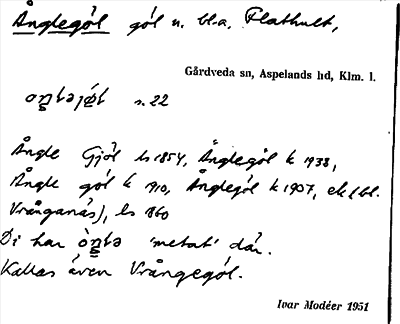 Ånglegöl göl n. bl.a. Flathult,
Gårdveda sn, Aspelands hd, Klm. l.
s. 22
Ångle Gjöl ls 1854, Änglegöl k 1938,
Ångle göl k 1910, Ånglegöl k 1907, ek (bl.
Vrånganäs), ls 1860
Di har 'metat' där.
Kallas även Vrångegöl.
Ivar Modéer 1951